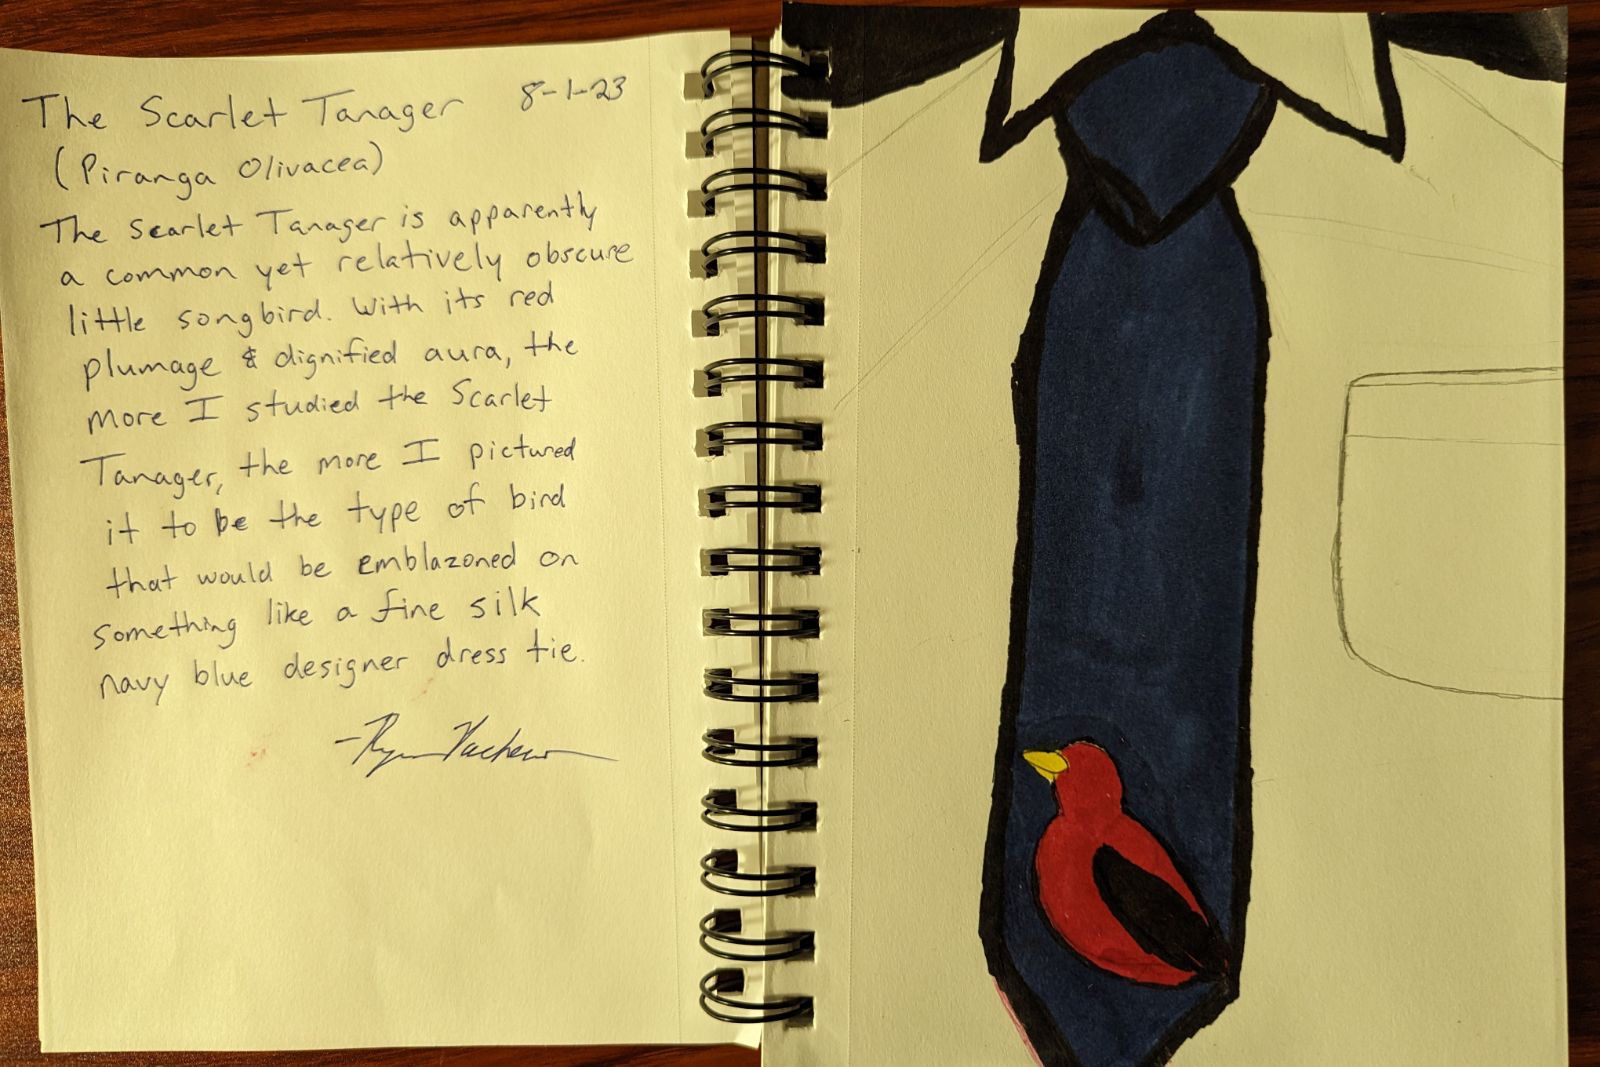 The Scarlet Tanager 8-1-23
(Piranga Olivacea)
The Scarlet Tanager is apparently
a common yet relatively obscure
little songbird. With its red
plumage & dignified aura, the
more I studied the Scarlet
Tanager, the more I pictured
it to be the type of bird
that would be emblazoned on
something like a fine silk
navy blue designer dress tie.